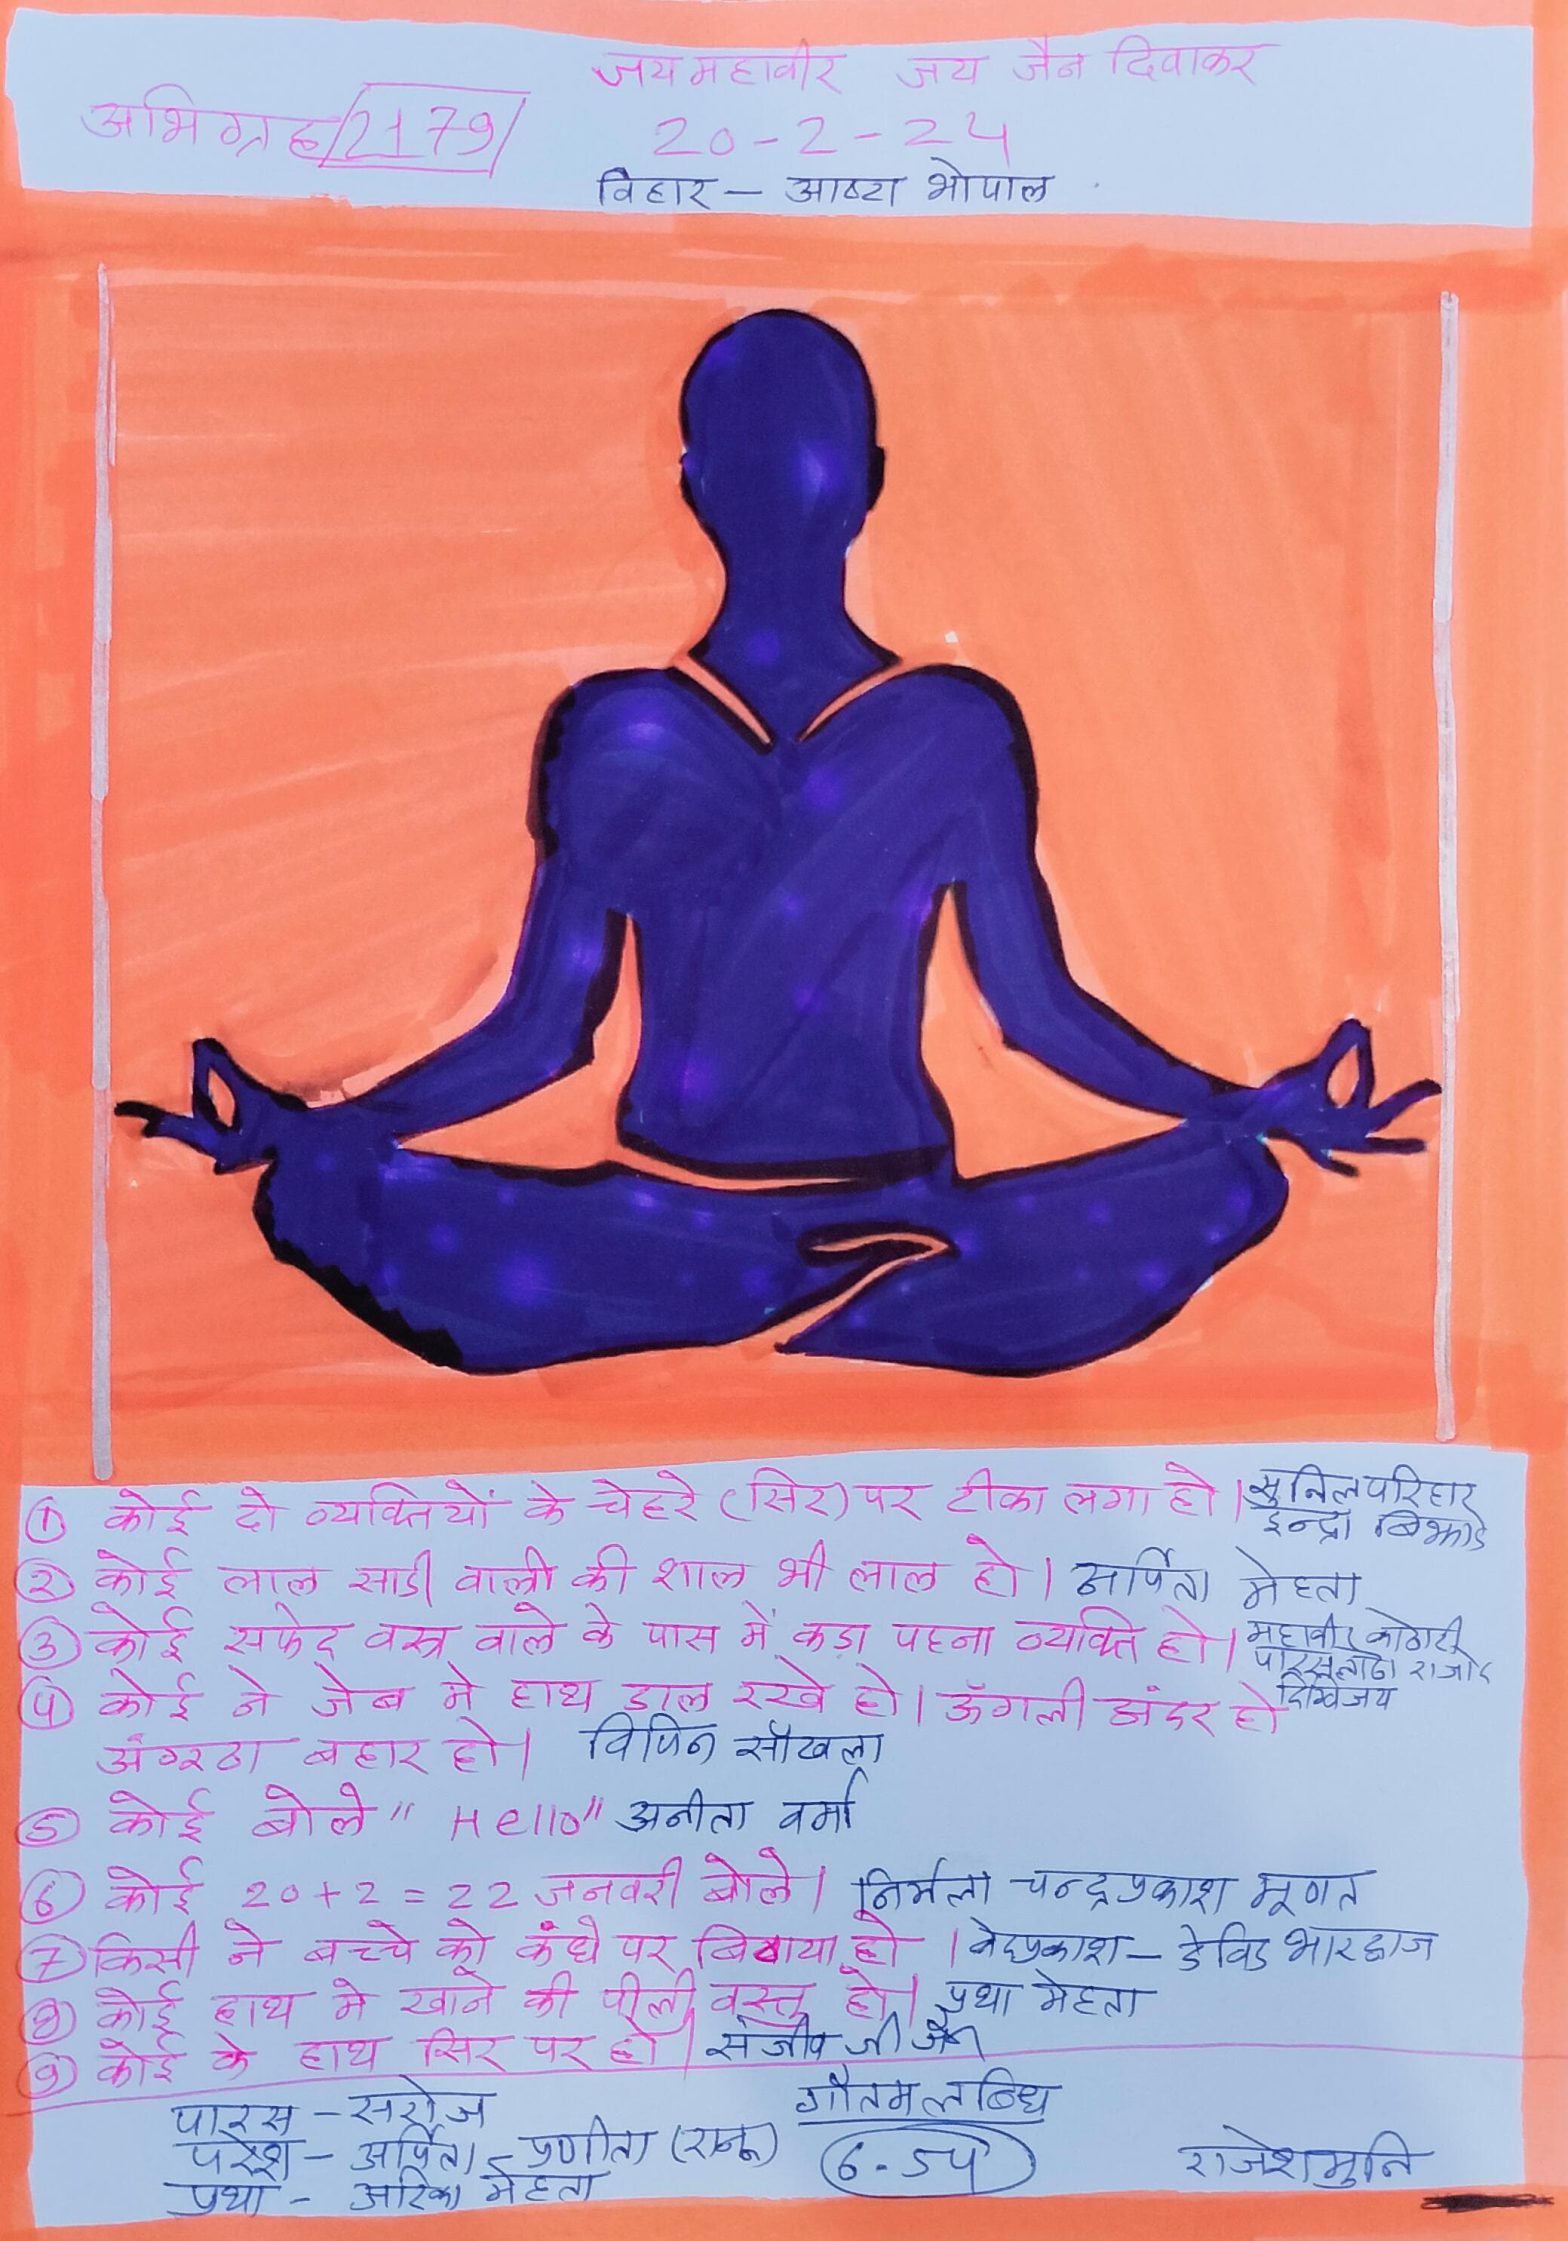 जय महावीर जय जैन दिवाकर
अभिग्रह 2179
20-2-24
विहार - आष्टा भोपाल
① कोई दो व्यक्तियों के चेहरे (सिर) पर टीका लगा हो। सुनिल परिहार
इन्द्रा
② कोई लाल साडी वाली की शाल भी लाल हो। अर्पिता मेहता
③ कोई सफेद वस्त्र वाले के पास में कड़ा पहना व्यक्ति हो। महावीर कोठारी
पारस लोढा
दिग्विजय
④ कोई ने जेब मे हाथ डाल रखे हो। ऊँगली अंदर हो
अंगूठा बहार हो। विपिन साँखला
⑤ कोई बोले "Hello" अनीता वर्मा
⑥ कोई 20+2=22 जनवरी बोले। निर्मला चन्द्रप्रकाश मूणत
⑦ किसी ने बच्चे को कंधे पर बिठाया हो। वेदप्रकाश - डेविड भारद्वाज
⑧ कोई हाथ मे खाने की पीली वस्तु हो। प्रथा मेहता
⑨ कोई के हाथ सिर पर हो। संजीव जी जैन
पारस - सरोज
परेश - अर्पिता - प्रणीता
प्रथा - अरिका मेहता
गौतमलब्धि
6-54
राजेशमुनि